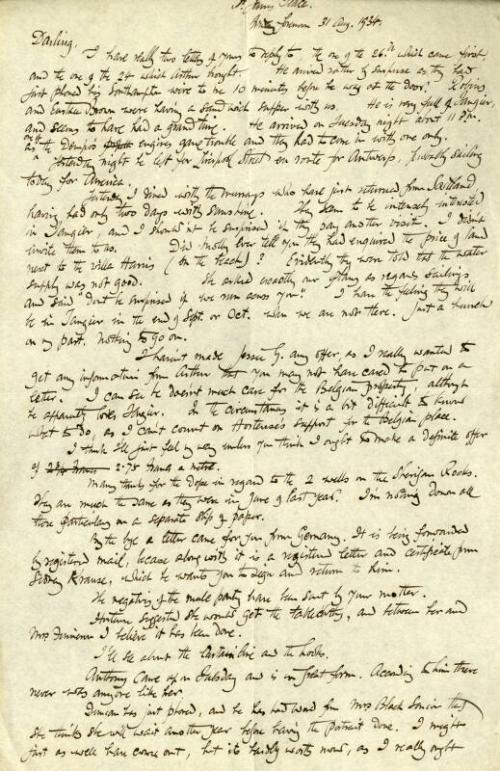 31 Aug. 1934.
Darling.
I have really two letters of yours to reply to the one of the 26th which came first,
and the one of the 24 which Arthur brought. He arrived rather by surprise as they had
just phoned by Southampton were to be 10 minutes before he was at the door.
and Eastea Down were having a sandwich supper with us. He is very full of Tangier
and seems to have had a grand time. He arrived on Tuesday night about 11 P.m.
as the engines gave trouble and they had to come in with one only.
Yesterday night he left for Liverpool Street en route for Antwerp, sailing
today for America.
Yesterday I dined with the Murrays who have just returned from Scotland
having had only two days with sunshine. They seem to be intensely interested
in Tangier, and I should n't be surprised if they pay another visit. I didn't
invite them to us. Did Molly ever tell you they had enquired the price of land
next to the Villa Harris (on the beach)? Evidently they were told that the water
supply was not good. She asked exactly our plans as regards sailings
and said "Don't be surprised if we run across you". I have the feeling they will
be in Tangier in the end of Sept. or Oct. when we are not there. Just a hunch
on my part. Nothing to go on.
I haven't made Jessie G. any offer, as I really wanted to
get any information from Arthur that you may not have cared to put on a
letter. I can see he doesn't much care for the Belgian property, although
he apparently loves Tangier. In the circumstances it is a bit difficult to know
what to do, as I can't count on Hortense's support for the Belgian place.
I think I'll just feel my way unless you think I ought to make a definite offer
of 2.75 francs a metre.
Many thanks for the dope in regard to the 2 wells on the Sherifian Rocks.
They are much the same as they were in June of last year. I'm noting down all
these particulars on a separate slip of paper.
By the bye a letter came for you from Germany. It is being forwarded
by registered mail, because along with it is a registered letter and certificate from
Sidney Krause, which he wants you to sign and return to him.
The negatives of the mule party have been sent by your mother.
Hortense suggested she would get the tablecloths, and between her and
Mrs I believe it has been done.
I'll see about the and the hooks.
Anthony came up on Tuesday and is in great form. According to him there
never was anyone like her.
Duncan has just phoned, and he has had word from Mrs Black that
she thinks she will wait another year before having the portrait done. I might
just as well have come out, but it's hardly worth now, as I really ought